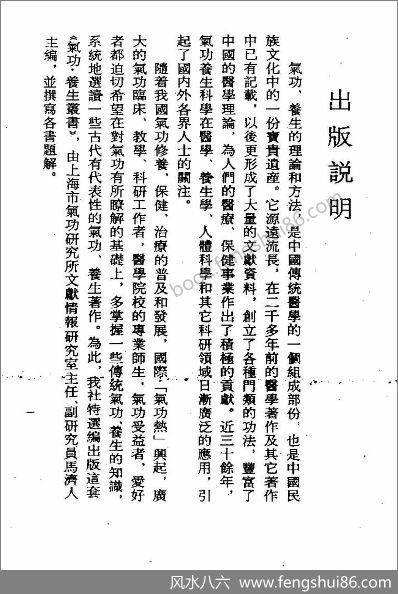 出版説明
氣功、養生的理論和方法，是中國傳統醫學的一個組成部份，也是中國民
族文化中的一份寶貴遺産。它源遠流長，在二千多年前的醫學著作及其它著作
中已有記載，以後更形成了大量的文獻資料，創立了各種門類的功法，豐富了
中國的醫學理論，為人們的醫療、保健事業作出了積極的貢獻。近三十餘年，
氣功養生科學在醫學、養生學、人體科學和其它科研領域日漸廣泛的應用，引
起了國内外各界人士的關注。
隨着我國氣功修養、保健、治療的普及和發展，國際「氣功熱」興起，廣
大的氣功臨床、教學、科研工作者，醫學院校的專業師生，氣功受益者、愛好
者都迫切希望在對氣功有所瞭解的基礎上，多掌握一些傳統氣功、養生的知識，
系統地選讀一些古代有代表性的氣功、養生著作。為此，我社特選編出版這套
《氣功·養生叢書》，由上海市氣功研究所文獻情報研究室主任、副研究員馬濟人
主編，並撰寫各書題解。
book.fengshui86.com
风水八六 | www.fengshui86.com